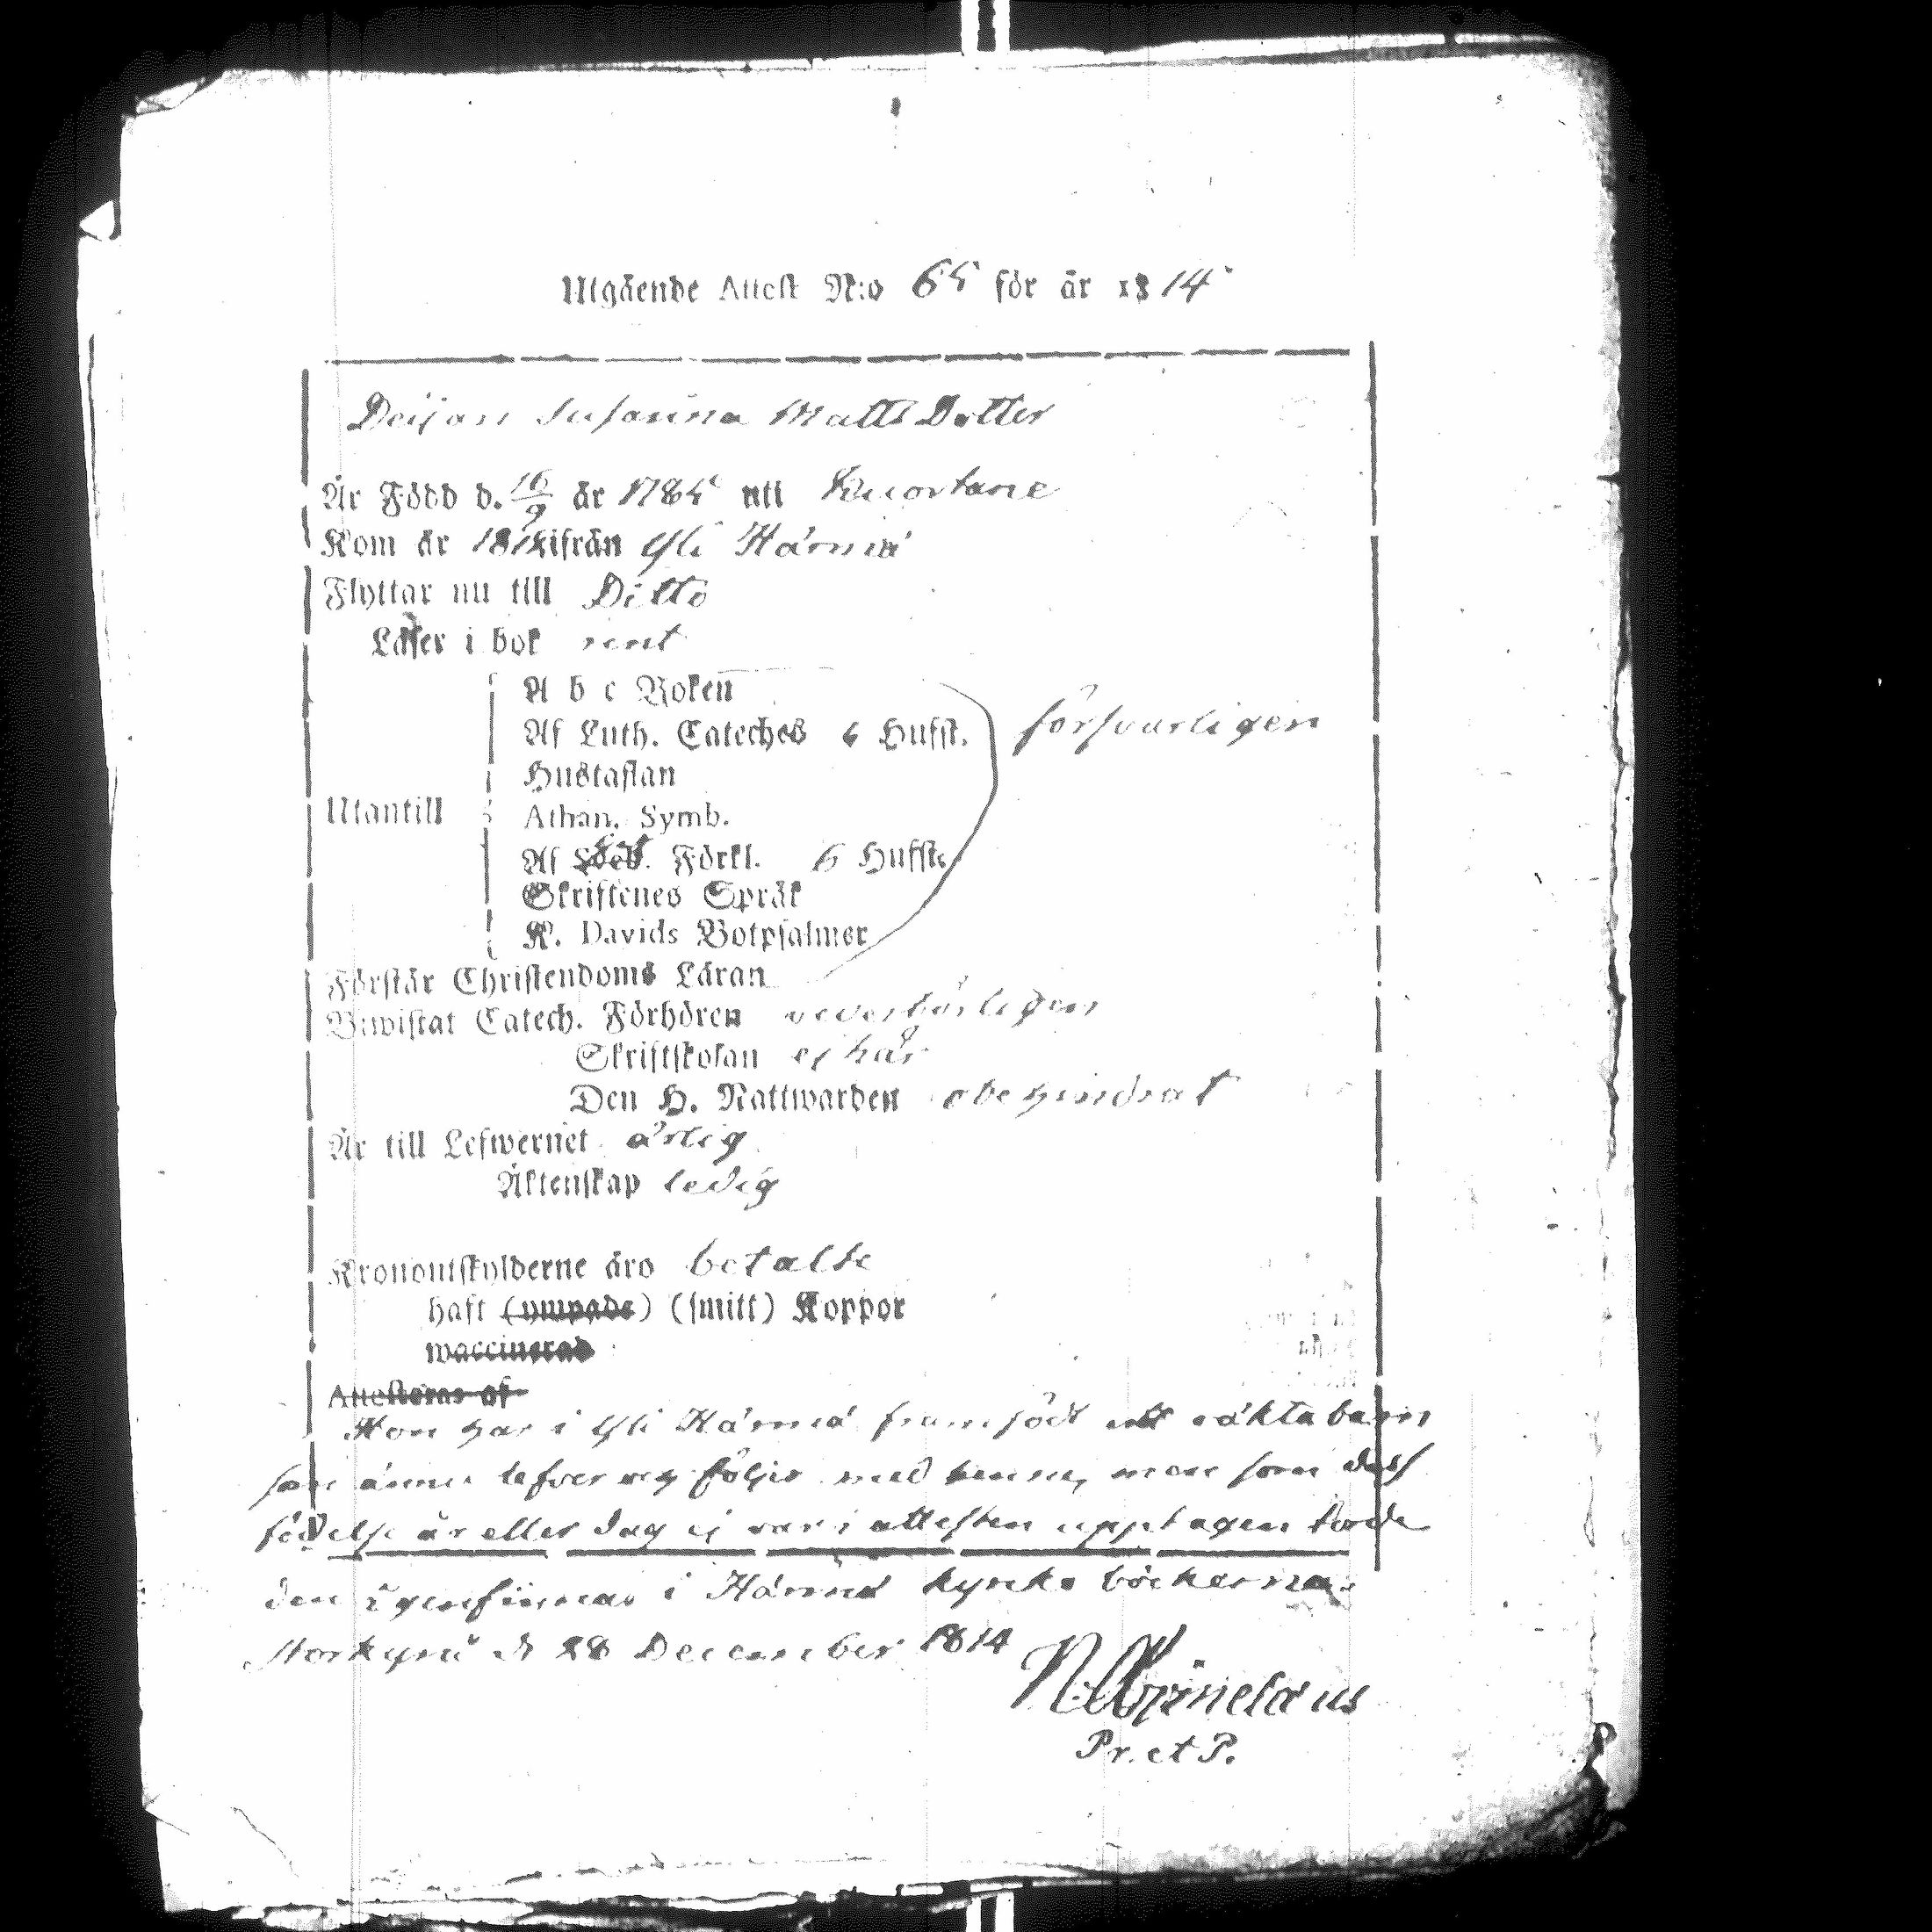 Utgående Attest N:o 65 för år 1814
Deijan Susanna Matts Dotter
Är Född d. 16/9 år 1785 uti Kuortane
Kom år 1814 ifrån Yli Härmä
Flyttar nu till Ditto
Läser i bok rent
A b c Boken
Af Luth. Cateches 6 Hufst. försvarligen
Hustaflan
Utantill
Athan. Symb.
Af Förkl. 6 Hufst.
Skriftenes Språk
K. Davids Botpsalmer
Förstår Christendoms Läran
Biwistat Catech. Förhören vederbörligen
Skriftskolan ej här
Den H. Nattwarden obehindrat
Är till Lefwernet ärlig
Äktenskap ledig
Kronoutskylderne äro betalte
haft (ympade) (smitt) Koppor
waccinerad
Attesteras af
Hon har i Yli Härmä framfödt ett oäkta barn
som ännu lefver och följer med henne, men som dess
födelse år eller dag ej var i attesten upptagen torde
den igenfinnas i Härmä kyrko böckerna.
Storkyro d 28 December 1814
Pr. et P.